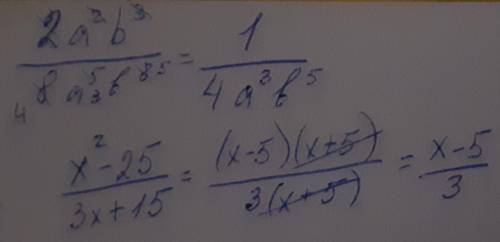 2a²b³ / ₄8a⁵₃b⁸⁵ = 1 / 4a³b⁵
x²-25 / 3x+15 = (x-5)(x+5) / 3(x+5) = x-5 / 3